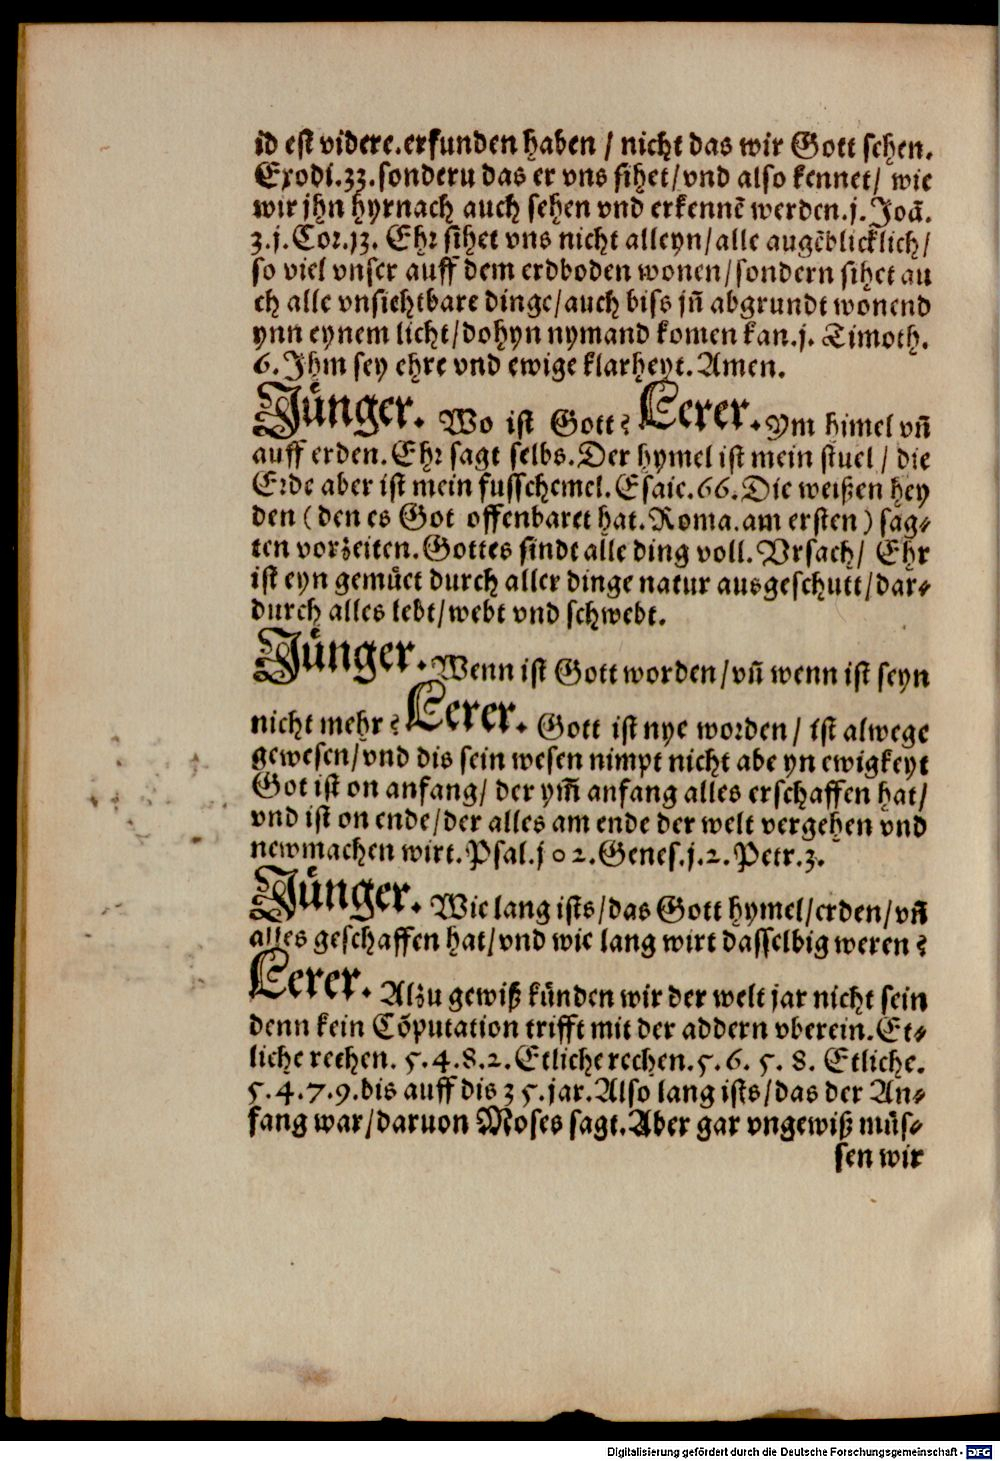 id est videre.erfunden haben / nicht das wir Gott sehen.
Exodi.33.sonderu das er vns sihet/vnd also kennet/ wie
wir jhn hyrnach auch sehen vnd erkennẽ werden.j. Joã.
3.j.Cor.j3. Ehr sihet vns nicht alleyn/alle augẽblicklich/
so viel vnser auff dem erdboden wonen/sondern sihet au
ch alle vnsichtbare dinge/auch biss jñ abgrundt wonend
ynn eynem licht/dohyn nymand komen kan.j. Timoth.
6.Jhm sey ehre vnd ewige klarheyt.Amen.
Jünger. Wo ist Gott? Lerer. Ym himel vñ
auff erden.Ehr sagt selbs.Der hymel ist mein stuel / die
Erde aber ist mein fusschemel.Esaie.66.Die weißen hey
den (den es Got offenbaret hat.Roma.am ersten) sag⸗
ten vorzeiten.Gottes sindt alle ding voll.Vrsach/ Ehr
ist eyn gemüet durch aller dinge natur ausgeschutt/dar⸗
durch alles lebt/webt vnd schwebt.
Jünger. Wenn ist Gott worden/vñ wenn ist seyn
nicht mehr? Lerer. Gott ist nye worden/ ist alwege
gewesen/vnd dis sein wesen nimpt nicht abe yn ewigkeyt
Got ist on anfang/ der ym̃ anfang alles erschaffen hat/
vnd ist on ende/der alles am ende der welt vergehen vnd
newmachen wirt.Psal.j02.Genes.j.2.Petr.3.
Jünger. Wie lang ists/das Gott hymel/erden/vñ
alles geschaffen hat/vnd wie lang wirt dasselbig weren?
Lerer. Alzu gewiß künden wir der welt jar nicht sein
denn kein Cõputation trifft mit der addern vberein.Et⸗
liche rechen. 5.4.8.2.Etliche rechen.5.6. 5. 8. Etliche.
5.4.7.9.bis auff dis 35.jar.Also lang ists/das der An⸗
fang war/daruon Moses sagt.Aber gar vngewiß müs⸗
sen wir
Digitalisierung gefördert durch die Deutsche Forschungsgemeinschaft - DFG